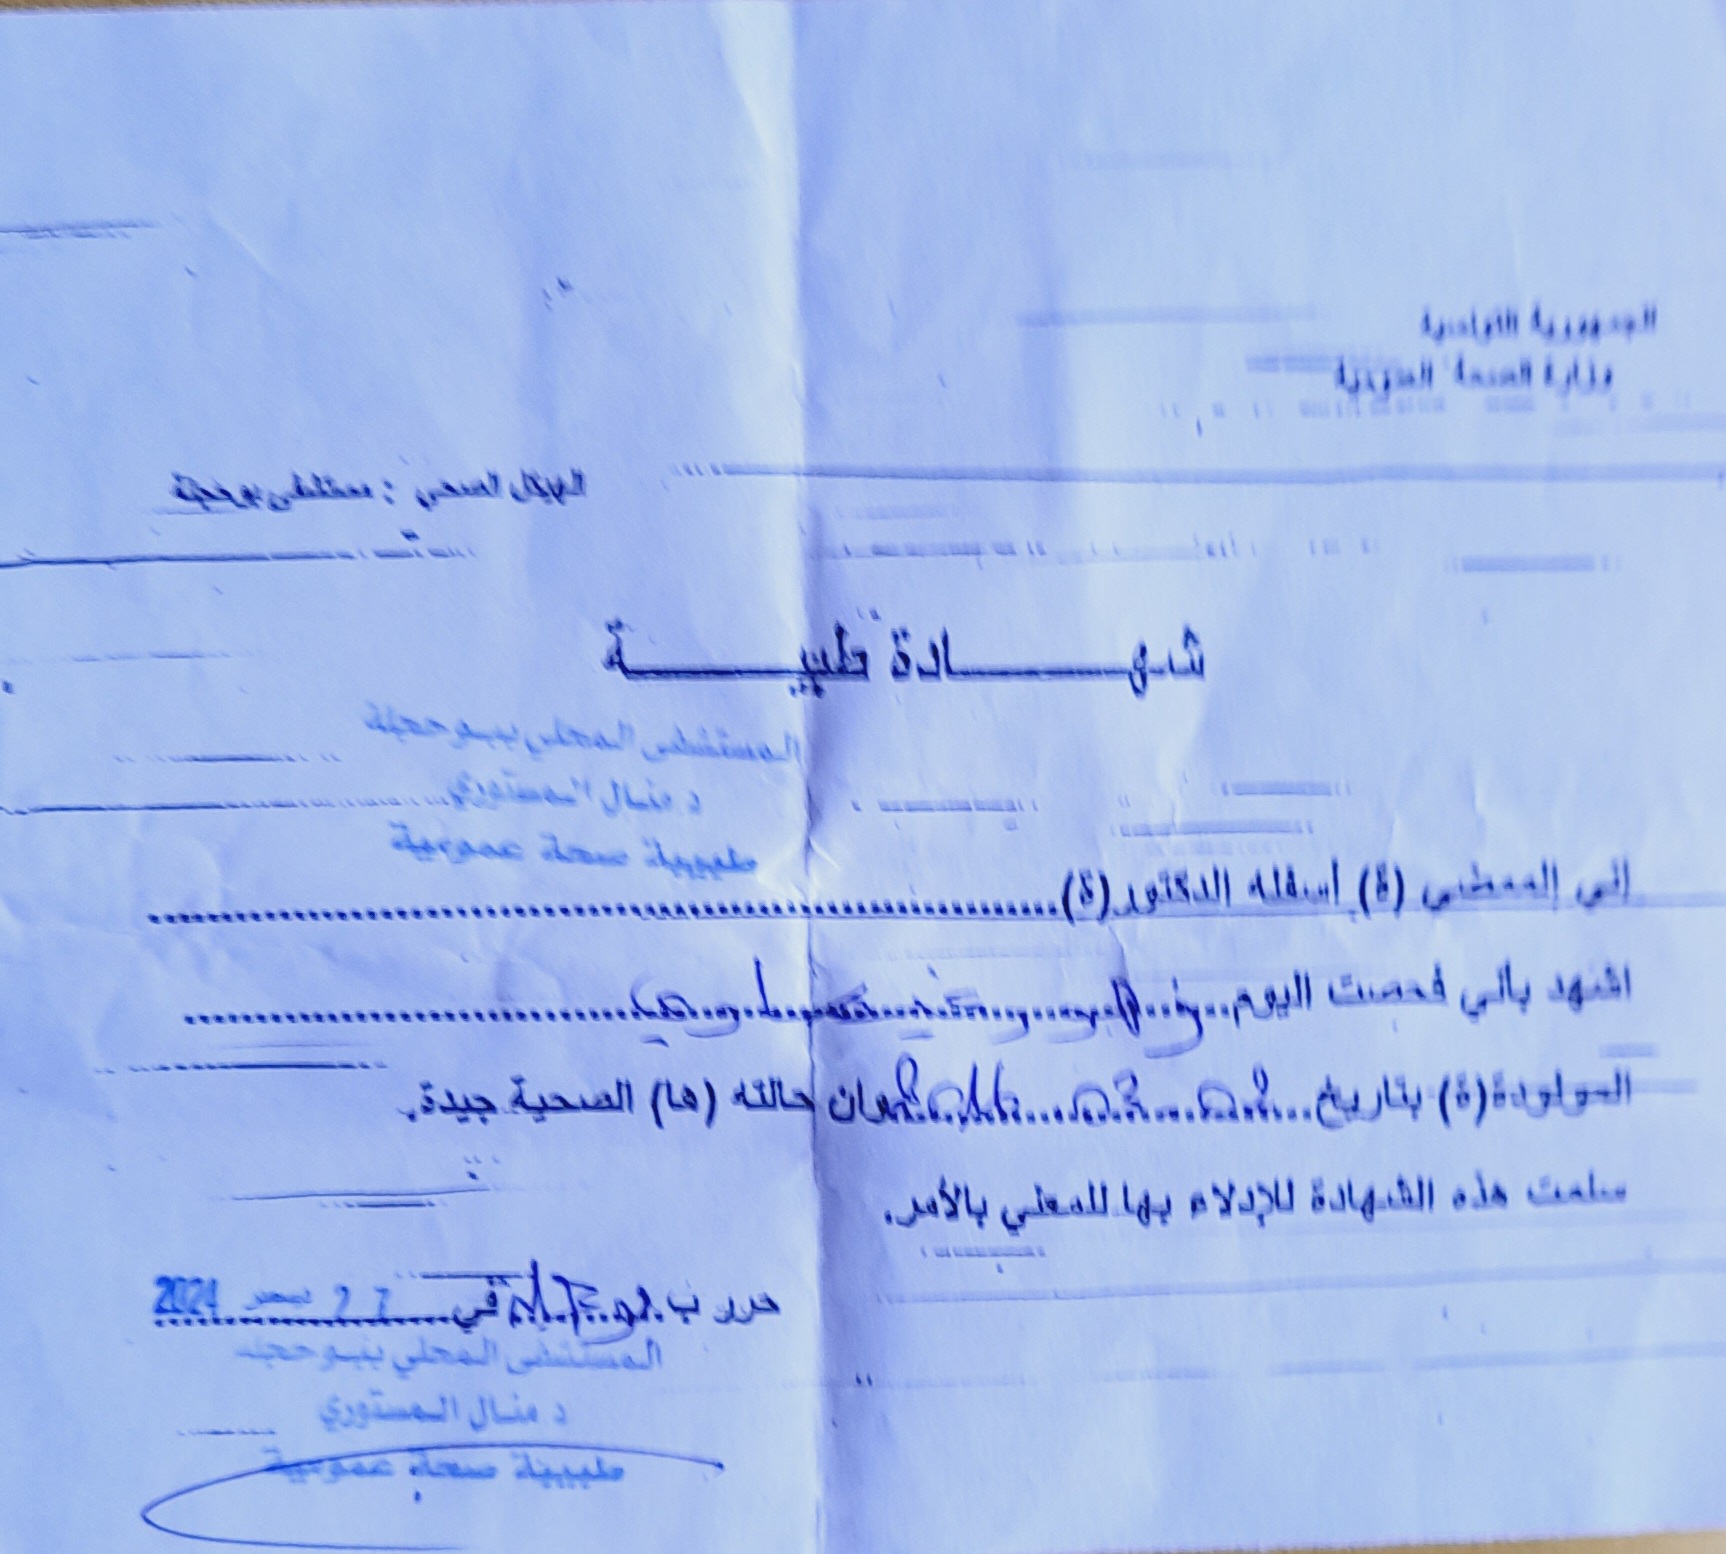 الجمهورية التونسية
وزارة الصحة العمومية
الهيكل الصحي : مستشفى بوحجلة
شهـــــــادة طبيـــــــة
المستشفى المحلي ببوحجلة
د. منال المستوري
طبيبة صحة عمومية
إني الممضي (ة) أسفله الدكتور(ة)......................................................
اشهد بأني فحصت اليوم
المولودة(ة) بتاريخ وان حالته (ها) الصحية جيدة.
سلمت هذه الشهادة للإدلاء بها للمعني بالأمر.
حرر ب في 27 2024
المستشفى المحلي ببوحجلة
د. منال المستوري
طبيبة صحة عمومية